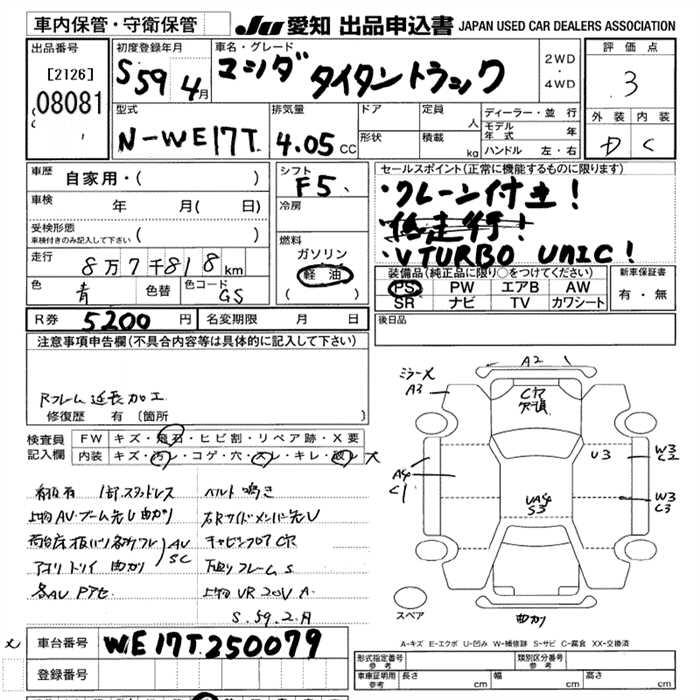 車内保管・守衛保管
JU 愛知 出品申込書 JAPAN USED CAR DEALERS ASSOCIATION
出品番号
[2126]
08081
初度登録年月
S59 4月
車名・グレード
マツダ タイタントラック
2WD
・
4WD
評価点
3
外装 内装
D C
型式
N-WE17T
排気量
4.05 CC
ドア
形状
定員
人
積載
kg
ディーラー・並行
モデル年式 年
ハンドル 左・右
車歴 自家用・( )
車検 年 月( 日)
受検形態
車検付きのみ記入して下さい ( )
走行 8万7千818km
色 青 色替 色コード GS
シフト
F5
冷房
燃料
ガソリン
軽油
( )
セールスポイント(正常に機能するものに限ります)
・クレーン付き!
・低走行!
・V TURBO UNIC!
装備品(純正品に限り○をつけてください)
PS PW エアB AW
SR ナビ TV カワシート
新車保証書
有・無
R券 5200 円 名変期限 月 日
後日品
注意事項申告欄(不具合内容等は具体的に記入して下さい)
Rフレーム延長加工
修復歴 有〔箇所 〕
検査員記入欄
FW キズ・飛石・ヒビ割・リペア跡・X要
内装 キズ・汚レ・コゲ・穴・スレ・キレ・破レ X
1部スタッドレス ベルト鳴き
上物AV・ブーム先U曲がり 右Rサイドメンバー先U
AV
SC
キャビンフロアCク
アオリ トリイ 曲がり 下廻りフレームS
各AV Pアセ
S.59.2.月
ミラーX
A3
A2
Cク
欠損
U3
W3
C2
A4
C1
UA4
S3
W3
C3
曲がり
スペア
A-キズ E-エクボ U-凹み W-補修跡 S-サビ C-腐食 XX-交換済
X 車台番号 WE17T.250079
登録番号
形式指定番号 参考
類別区分番号 参考
車庫証明用 参考 長さ cm 幅 cm 高さ cm